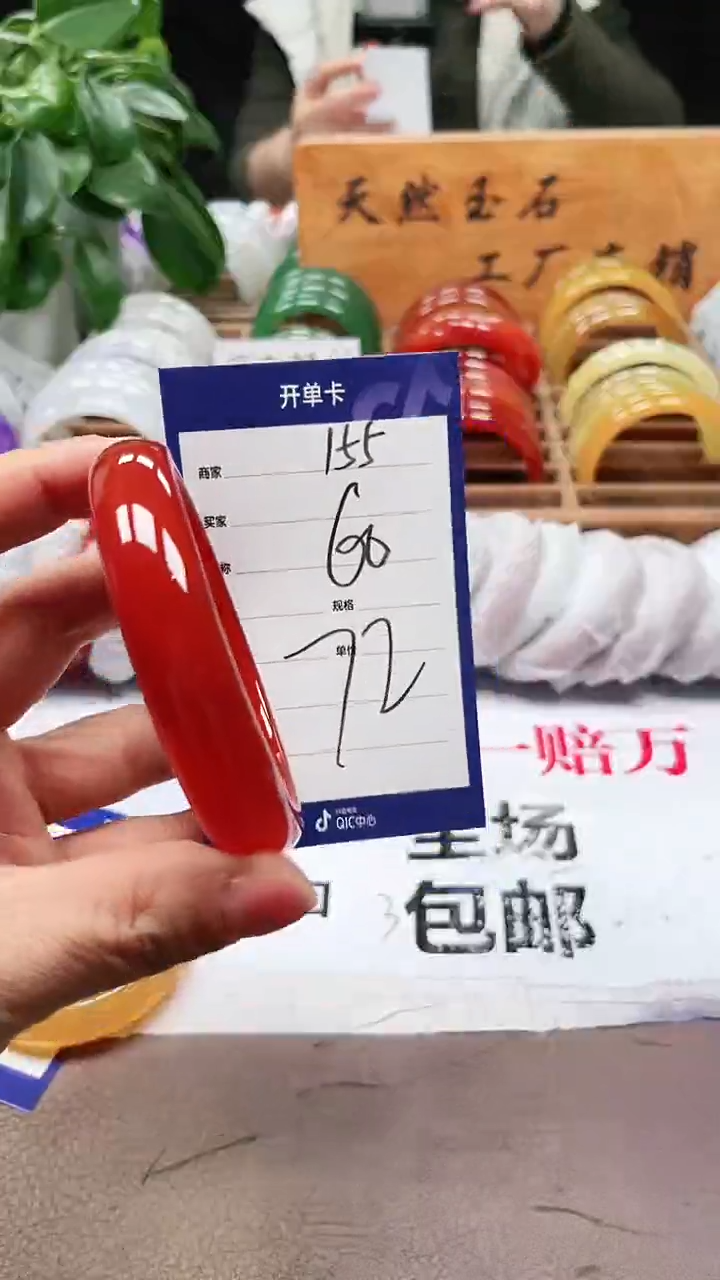 天然玉石
工厂直销
开单卡
商家 155
买家 60
称
规格
单价
72
QIC中心
一赔万
全场
包邮